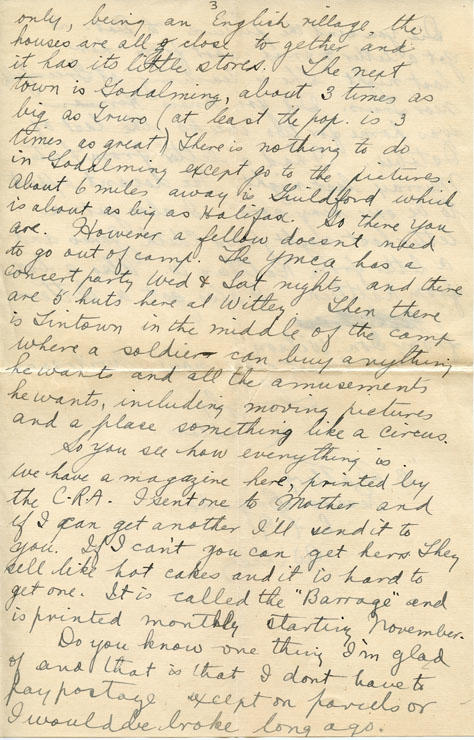 3
only, being an English village, the
houses are all close to gether and
it has its little stores. The next
town is Godalming, about 3 times as
big as Truro (at least the pop. is 3
times as great) There is nothing to do
in Godalming except go to the pictures.
About 6 miles away is Guildford which
is about as big as Halifax. So there you
are. However a fellow doesn't need
to go out of camp. The Ymca has a
concert party Wed & Sat nights and there
are 5 huts here at Witley. Then there
is Tintown in the middle of the camp
where a soldier can buy anything
he wants and all the amusements
he wants, including moving pictures
and a place something like a circus.
So you see how everything is.
We have a magazine here, printed by
the C.R.A. I sent one to Mother and
if I can get another I'll send it to
you. If I can't you can get hers. They
sell like hot cakes and it is hard to
get one. It is called the "Barrage" and
is printed monthly starting November.
Do you know one thing I'm glad
of and that is that I dont have to
pay postage except on parcels or
I would be broke long ago.